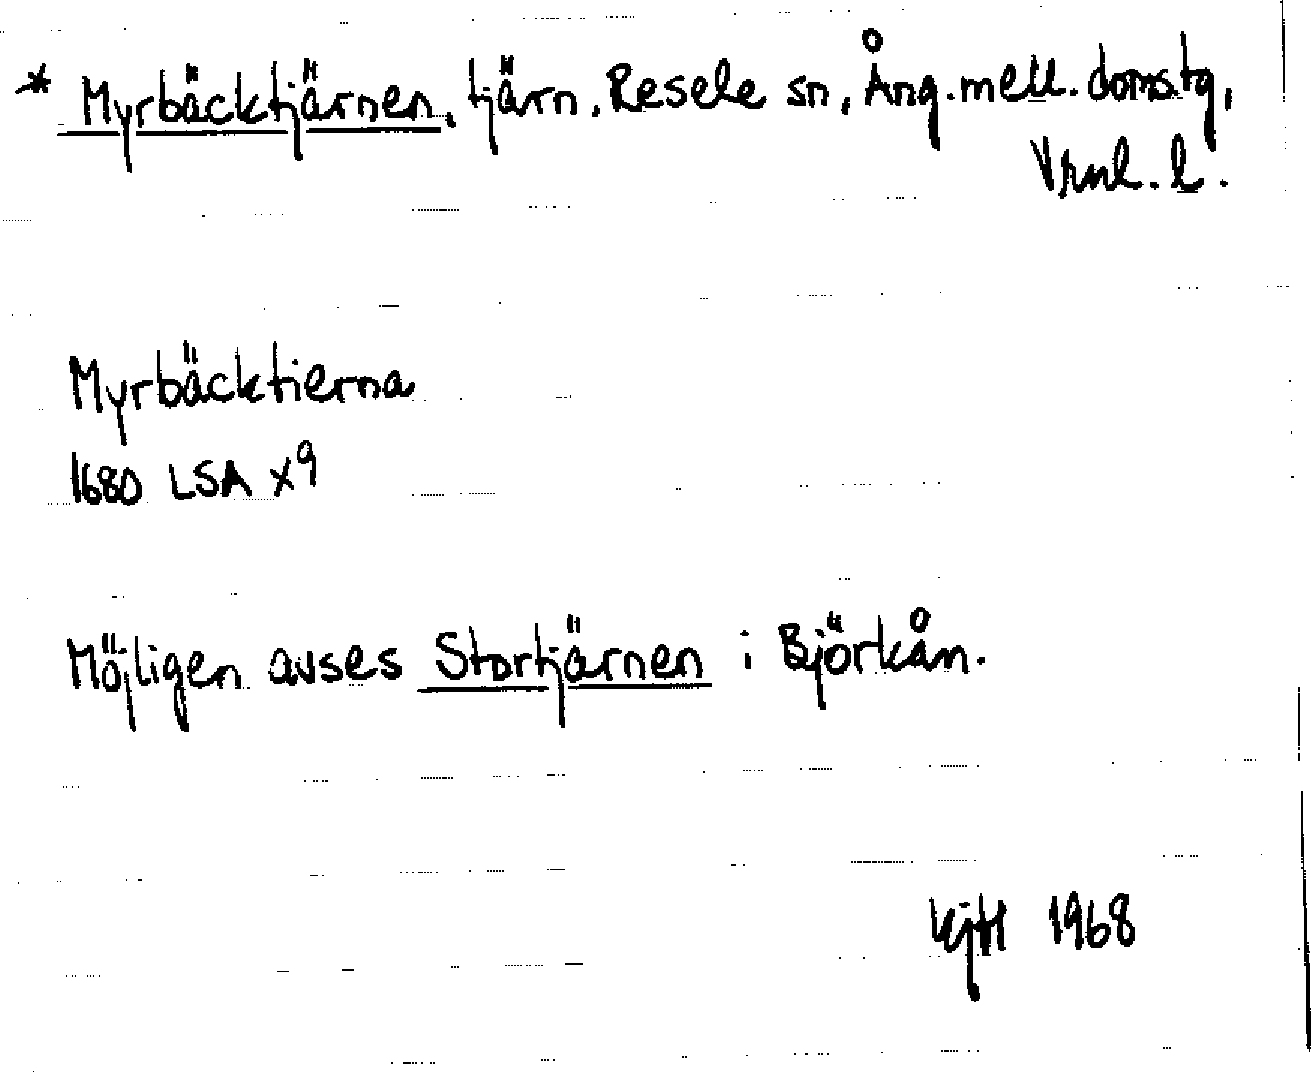 * Myrbäcktjärnen, tjärn, Resele sn, Ång.mell.domstg,
Vrnl. l.
Myrbäcktierna
1680 LSA X9
Möjligen avses Stortjärnen i Björkån.
KjH 1968